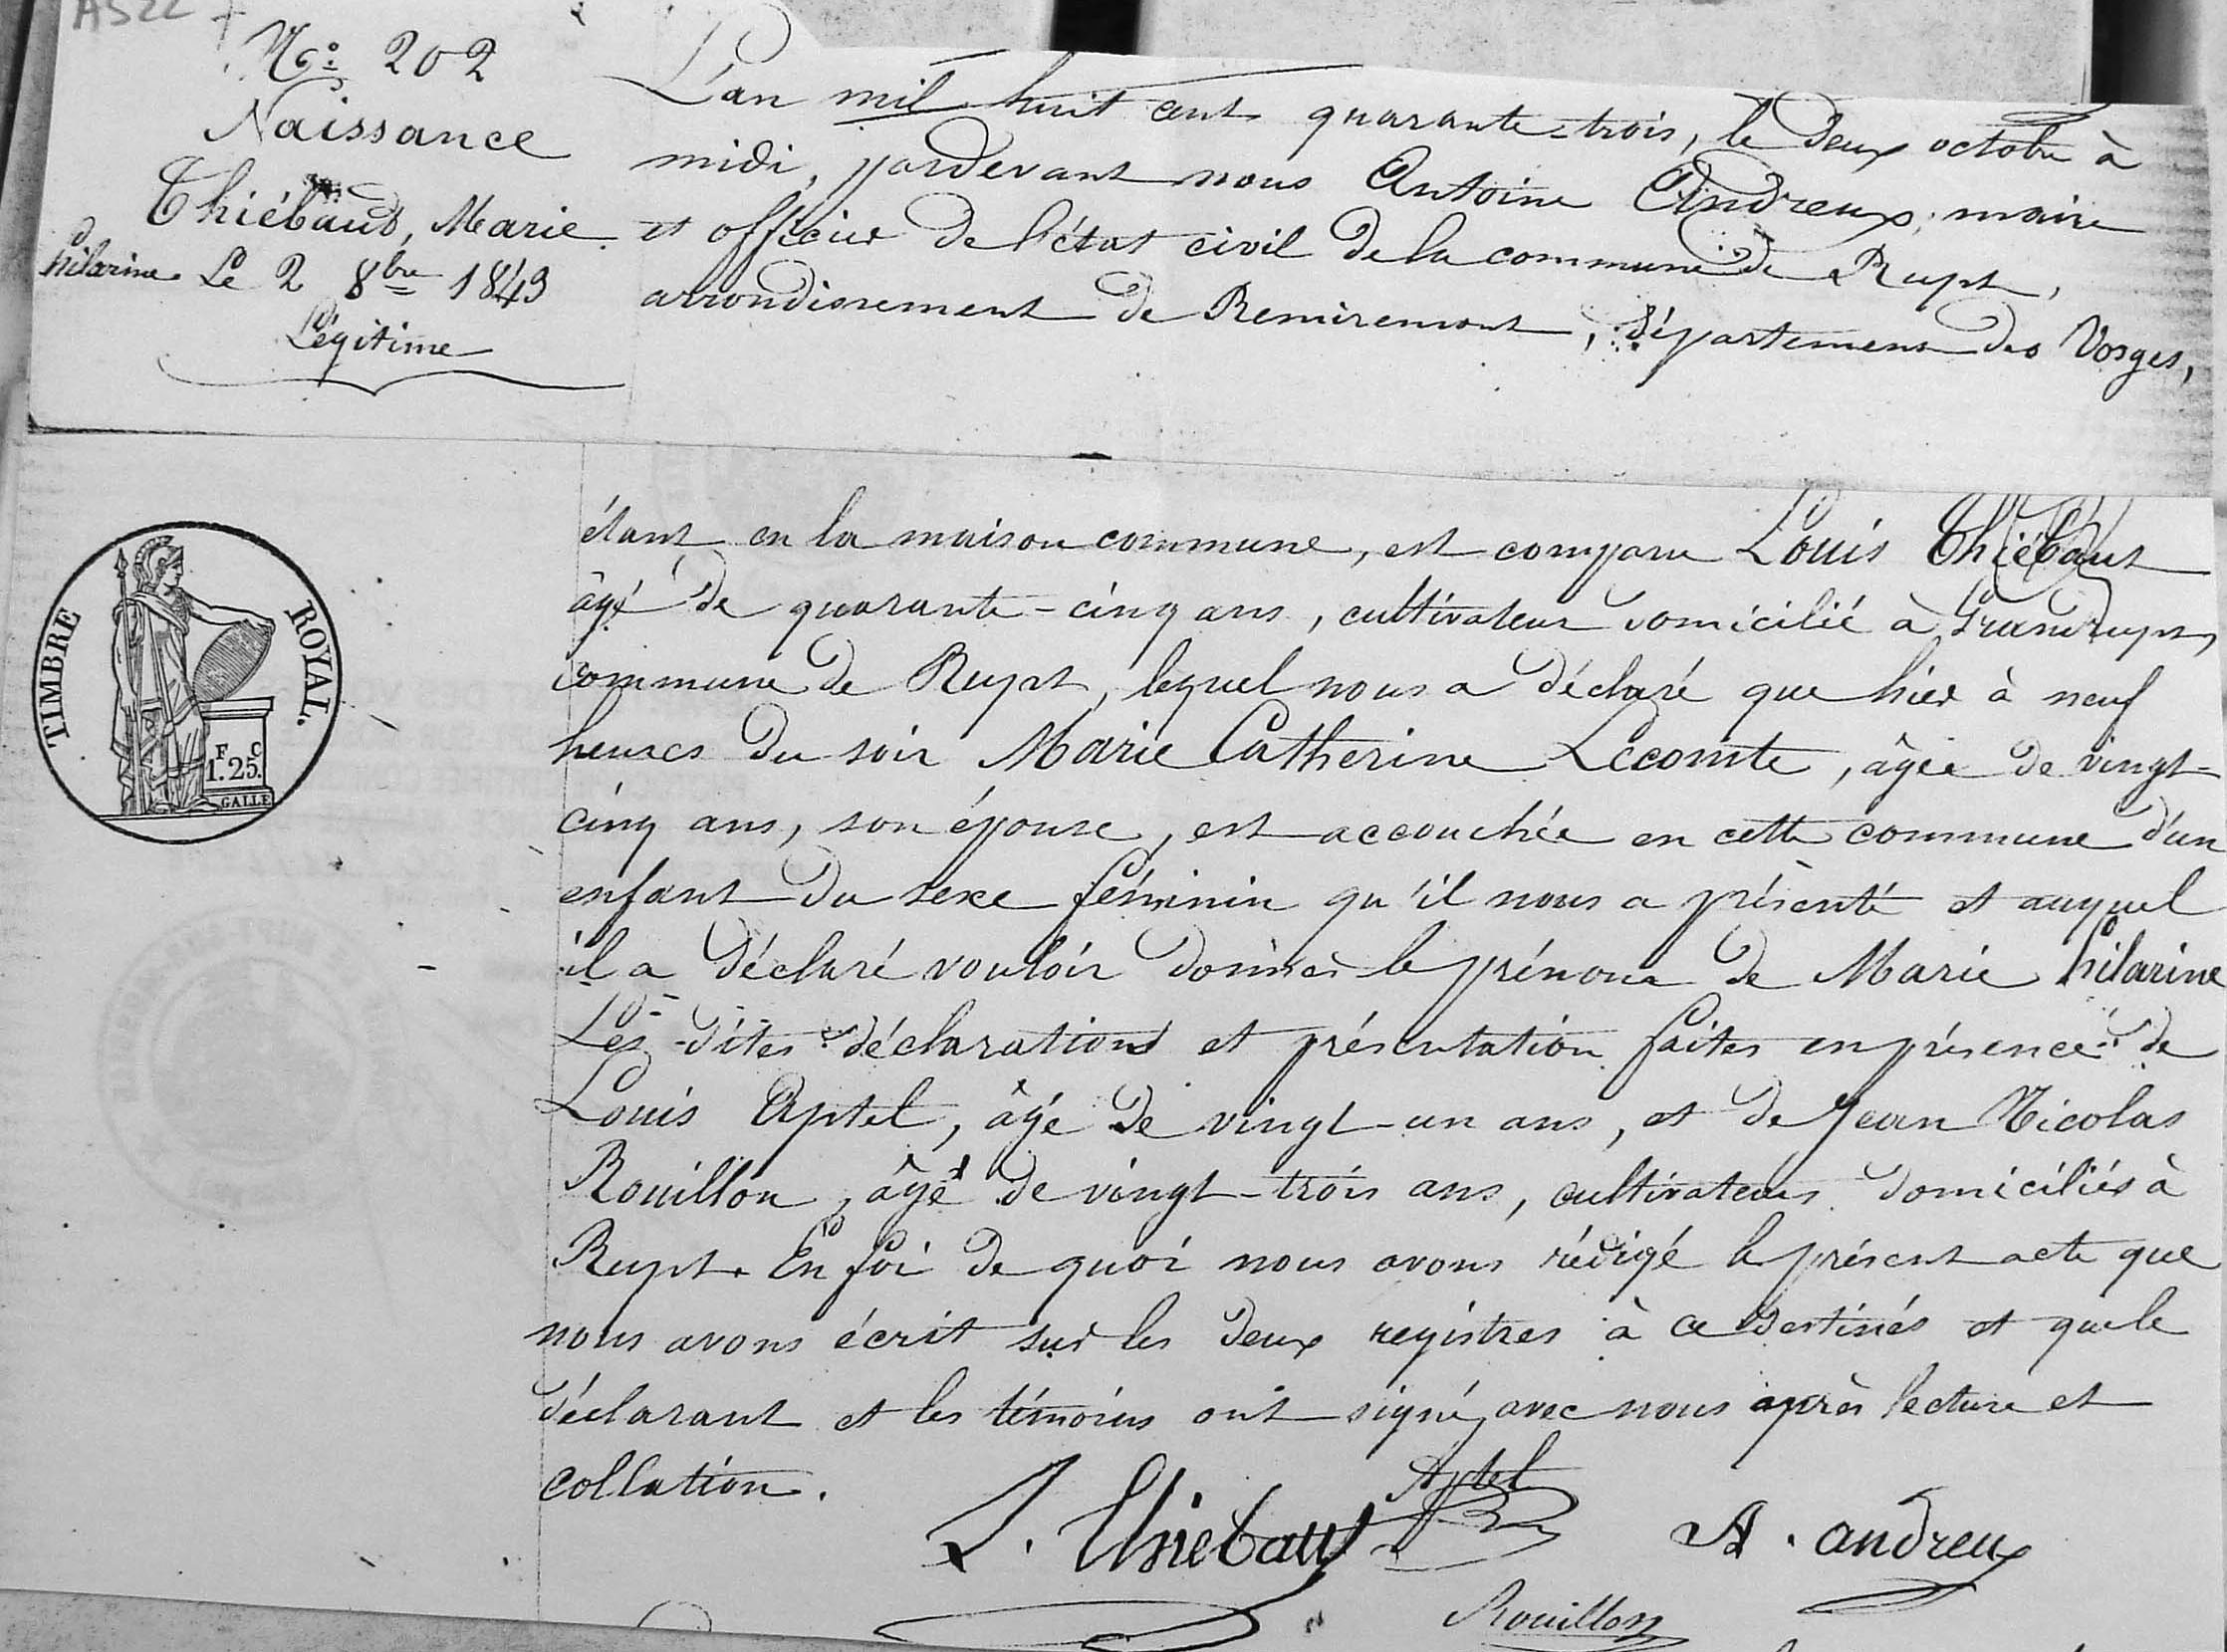 A522
No: 202
Naissance
Thiébaut, Marie
hilarine Le 2 8bre 1843
Légitime
L'an mil huit cent quarante-trois, le deux octobre à
midi, pardevant nous Antoine Andreux, maire
et officier de l'état civil de la commune de Rupt,
arrondissement de Remiremont, département des Vosges,
étant en la maison commune, est comparu Louis Thiébaut
âgé de quarante-cinq ans, cultivateur domicilié à Grandrupt,
commune de Rupt, lequel nous a déclaré que hier à neuf
heures du soir Marie Catherine Lecomte, âgée de vingt-
cinq ans, son épouse, est accouchée en cette commune d'un
enfant du sexe féminin qu'il nous a présenté et auquel
il a déclaré vouloir donner le prénom de Marie hilarine
Les-dites déclarations et présentation faites en présence de
Louis Aptel, âgé de vingt-un ans, et de Jean Nicolas
Rouillon, âgé de vingt-trois ans, cultivateurs domiciliés à
Rupt. En foi de quoi nous avons rédigé le présent acte que
nous avons écrit sur les deux registres à ce destinés et que le
déclarant et les témoins ont signé, avec nous après lecture et
collation.
TIMBRE ROYAL.
F C
1.25.
GALLE
Aptel
L. Thiebaut
A. andreux
Rouillon